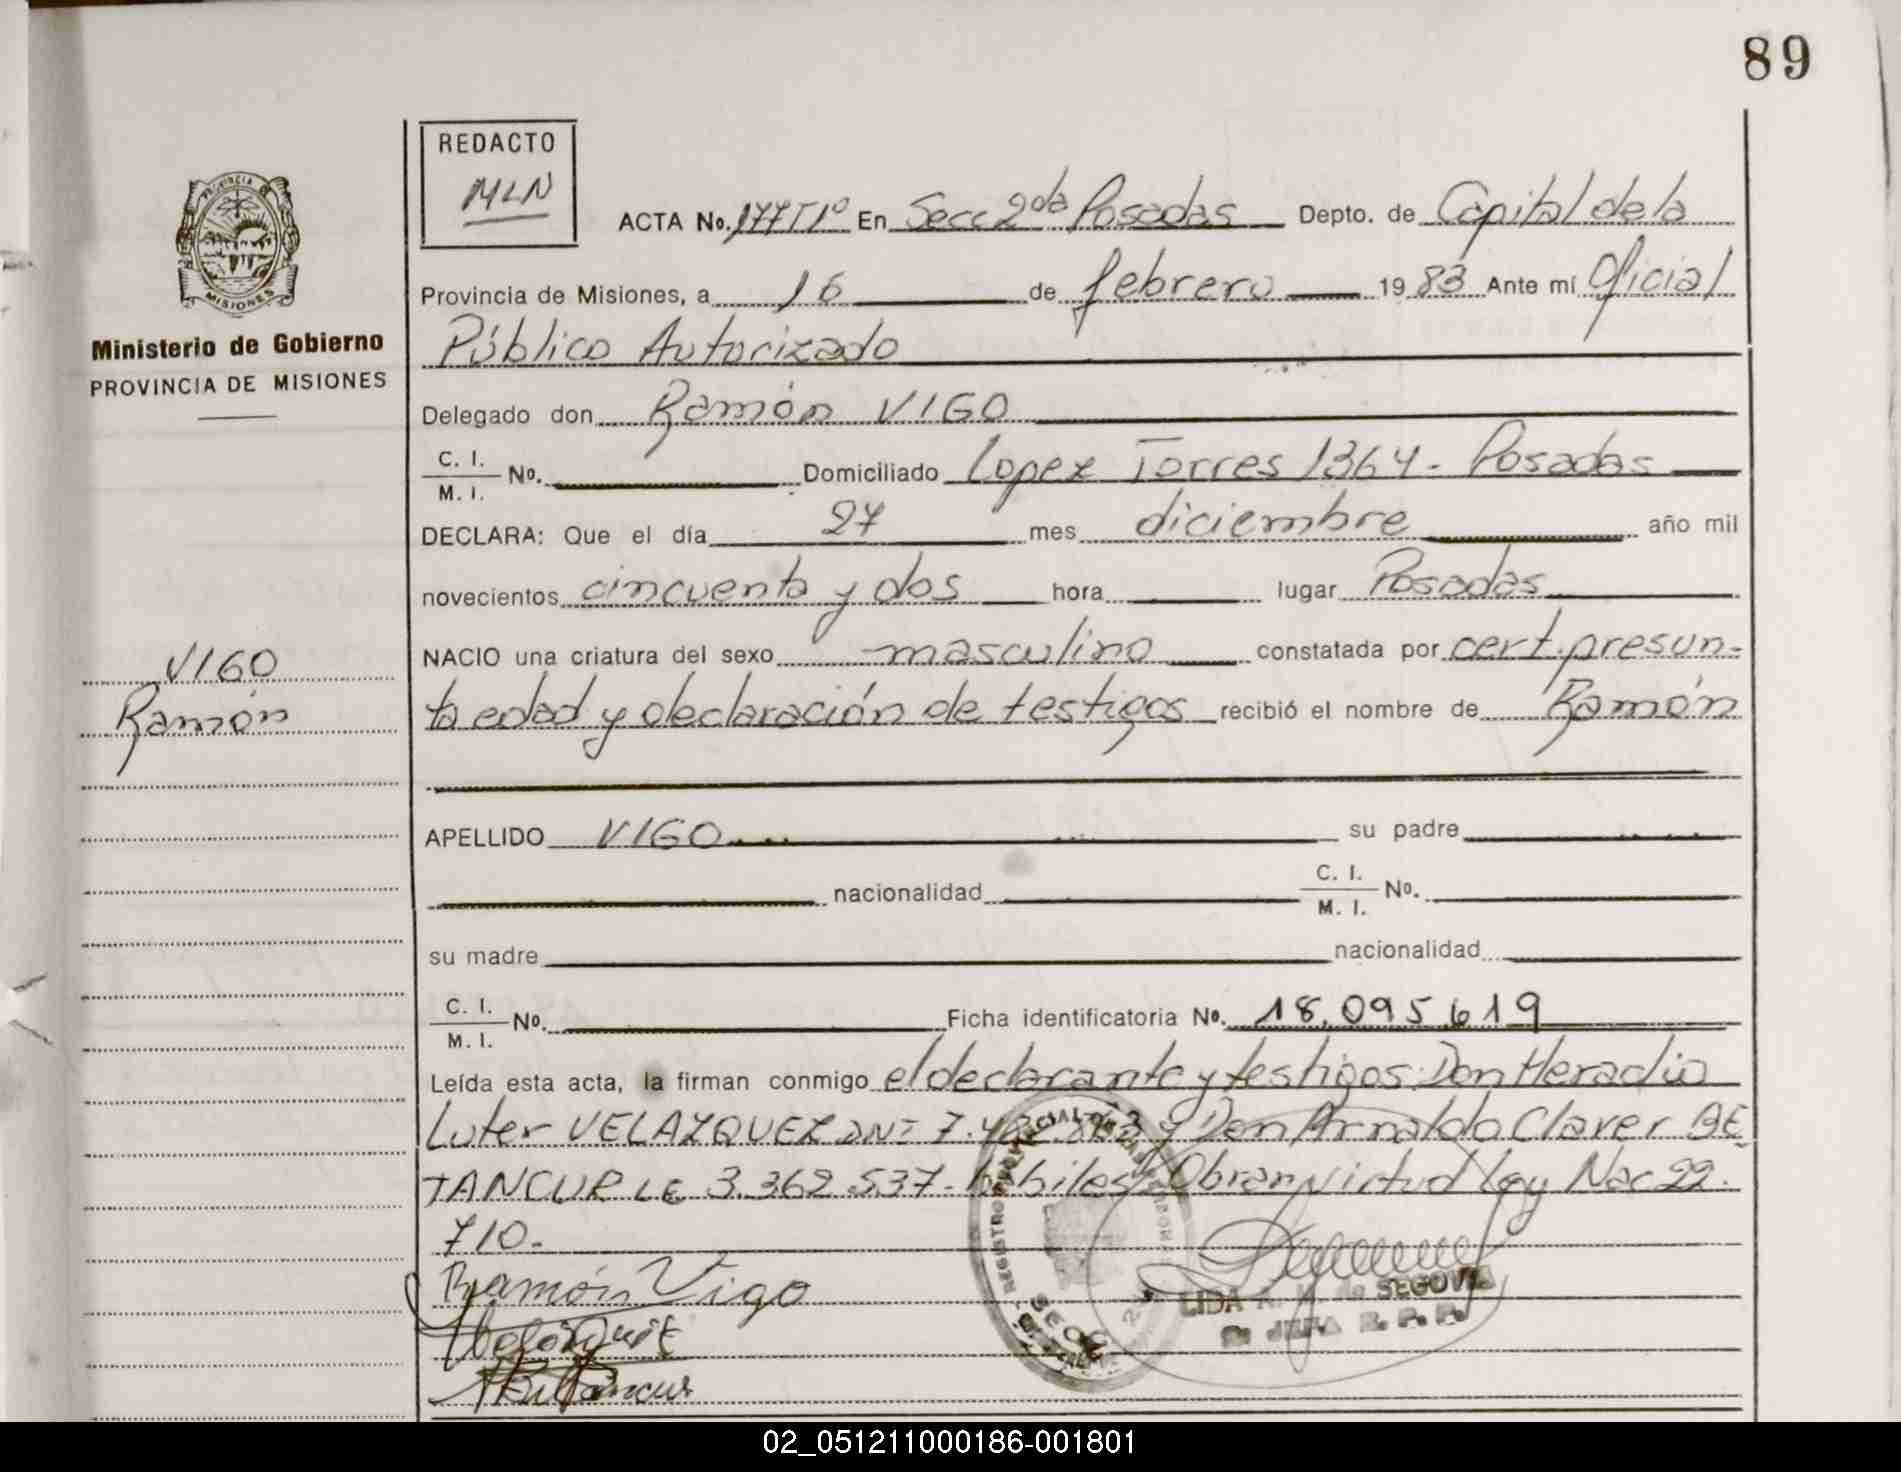 89
REDACTO
MLN
ACTA No. 177 T1º En Secc 2da Posadas Depto. de Capital de la
PROVINCIA
MISIONES
Provincia de Misiones, a 16 de febrero 1983 Ante mí Oficial
Ministerio de Gobierno
Público Autorizado
PROVINCIA DE MISIONES
Delegado don Ramón VIGO
C. I. / M. I. No. Domiciliado Lopez Torres 1364 - Posadas
DECLARA: Que el día 27 mes diciembre año mil
novecientos cincuenta y dos hora lugar Posadas
NACIO una criatura del sexo masculino constatada por cert. presun-
VIGO
Ramón
ta edad y declaración de testigos recibió el nombre de Ramón
APELLIDO VIGO su padre
nacionalidad C. I. / M. I. No.
su madre nacionalidad
C. I. / M. I. No. Ficha identificatoria No. 18.095.619
Leída esta acta, la firman conmigo el declarante y testigos: Don Heraclio
Luter VELAZQUEZ DNI 7. y Don Arnaldo Claver BE
TANCUR LE 3.362.537 - hábiles. Obran virtud Ley Nac 22.
710.-
Ramón Vigo
LIDA de SEGOVIA
JEFA R. P. P.
02_051211000186-001801